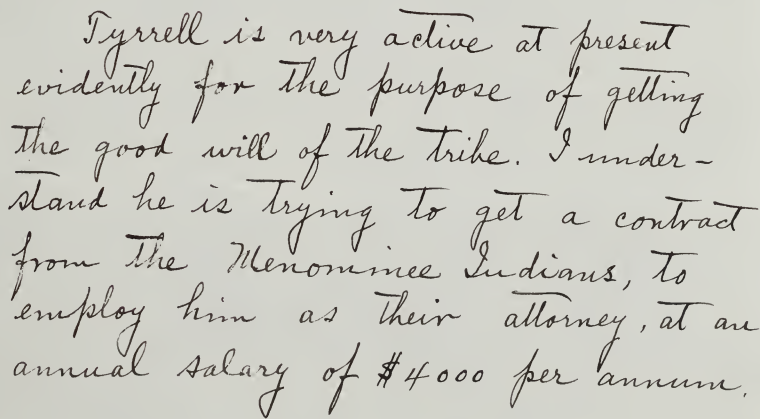 Tyrrell is very active at present
evidently for the purpose of getting
the good will of the tribe. I under-
stand he is trying to get a contract
from the Menominee Indians, to
employ him as their attorney, at an
annual salary of $4000 per annum.